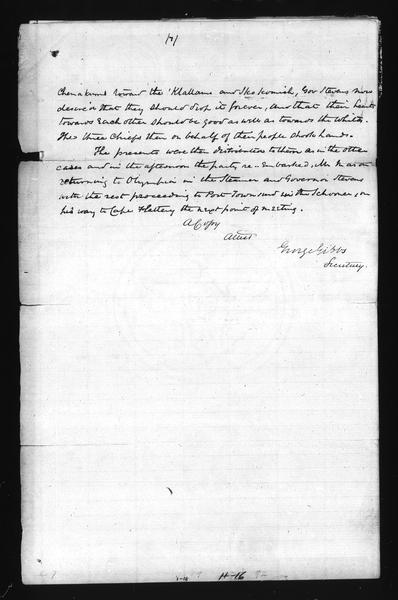 Chemakum toward the 'Klallams and Skokomish, Gov Stevens now
desired that they should drop it forever, and that their hearts
towards each other should be good as well as towards the Whites.
The three Chiefs then on behalf of their people shook hands.
The presents were then distributed to them as in the other
cases and in the afternoon the party re-embarked, Mr.
returning to Olympia in the Steamer and Governor Stevens
with the rest proceeding to Port Townsend in the Schooner, on
his way to Cape Flattery the next point of meeting.
A Copy
Attest
George Gibbs
Secretary.
H-16